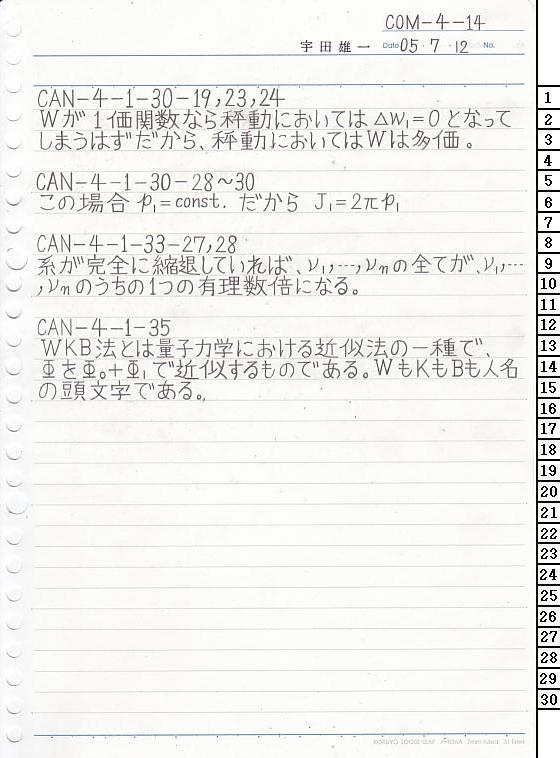 COM-4-14
宇田雄一 Date 05・7・12 No.
CAN-4-1-30-19,23,24
Wが1価関数なら秤動においては△W₁=0となって
しまうはずだから、秤動においてはWは多価。
CAN-4-1-30-28〜30
この場合 p₁=const. だから J₁=2πp₁
CAN-4-1-33-27,28
系が完全に縮退していれば、ν₁,…,νnの全てが、ν₁,…
,νnのうちの1つの有理数倍になる。
CAN-4-1-35
WKB法とは量子力学における近似法の一種で、
ΦをΦ₀+Φ₁で近似するものである。WもKもBも人名
の頭文字である。
1
2
3
4
5
6
7
8
9
10
11
12
13
14
15
16
17
18
19
20
21
22
23
24
25
26
27
28
29
30
KOKUYO LOOSE-LEAF ノ-836A 7mm ruled 31 lines